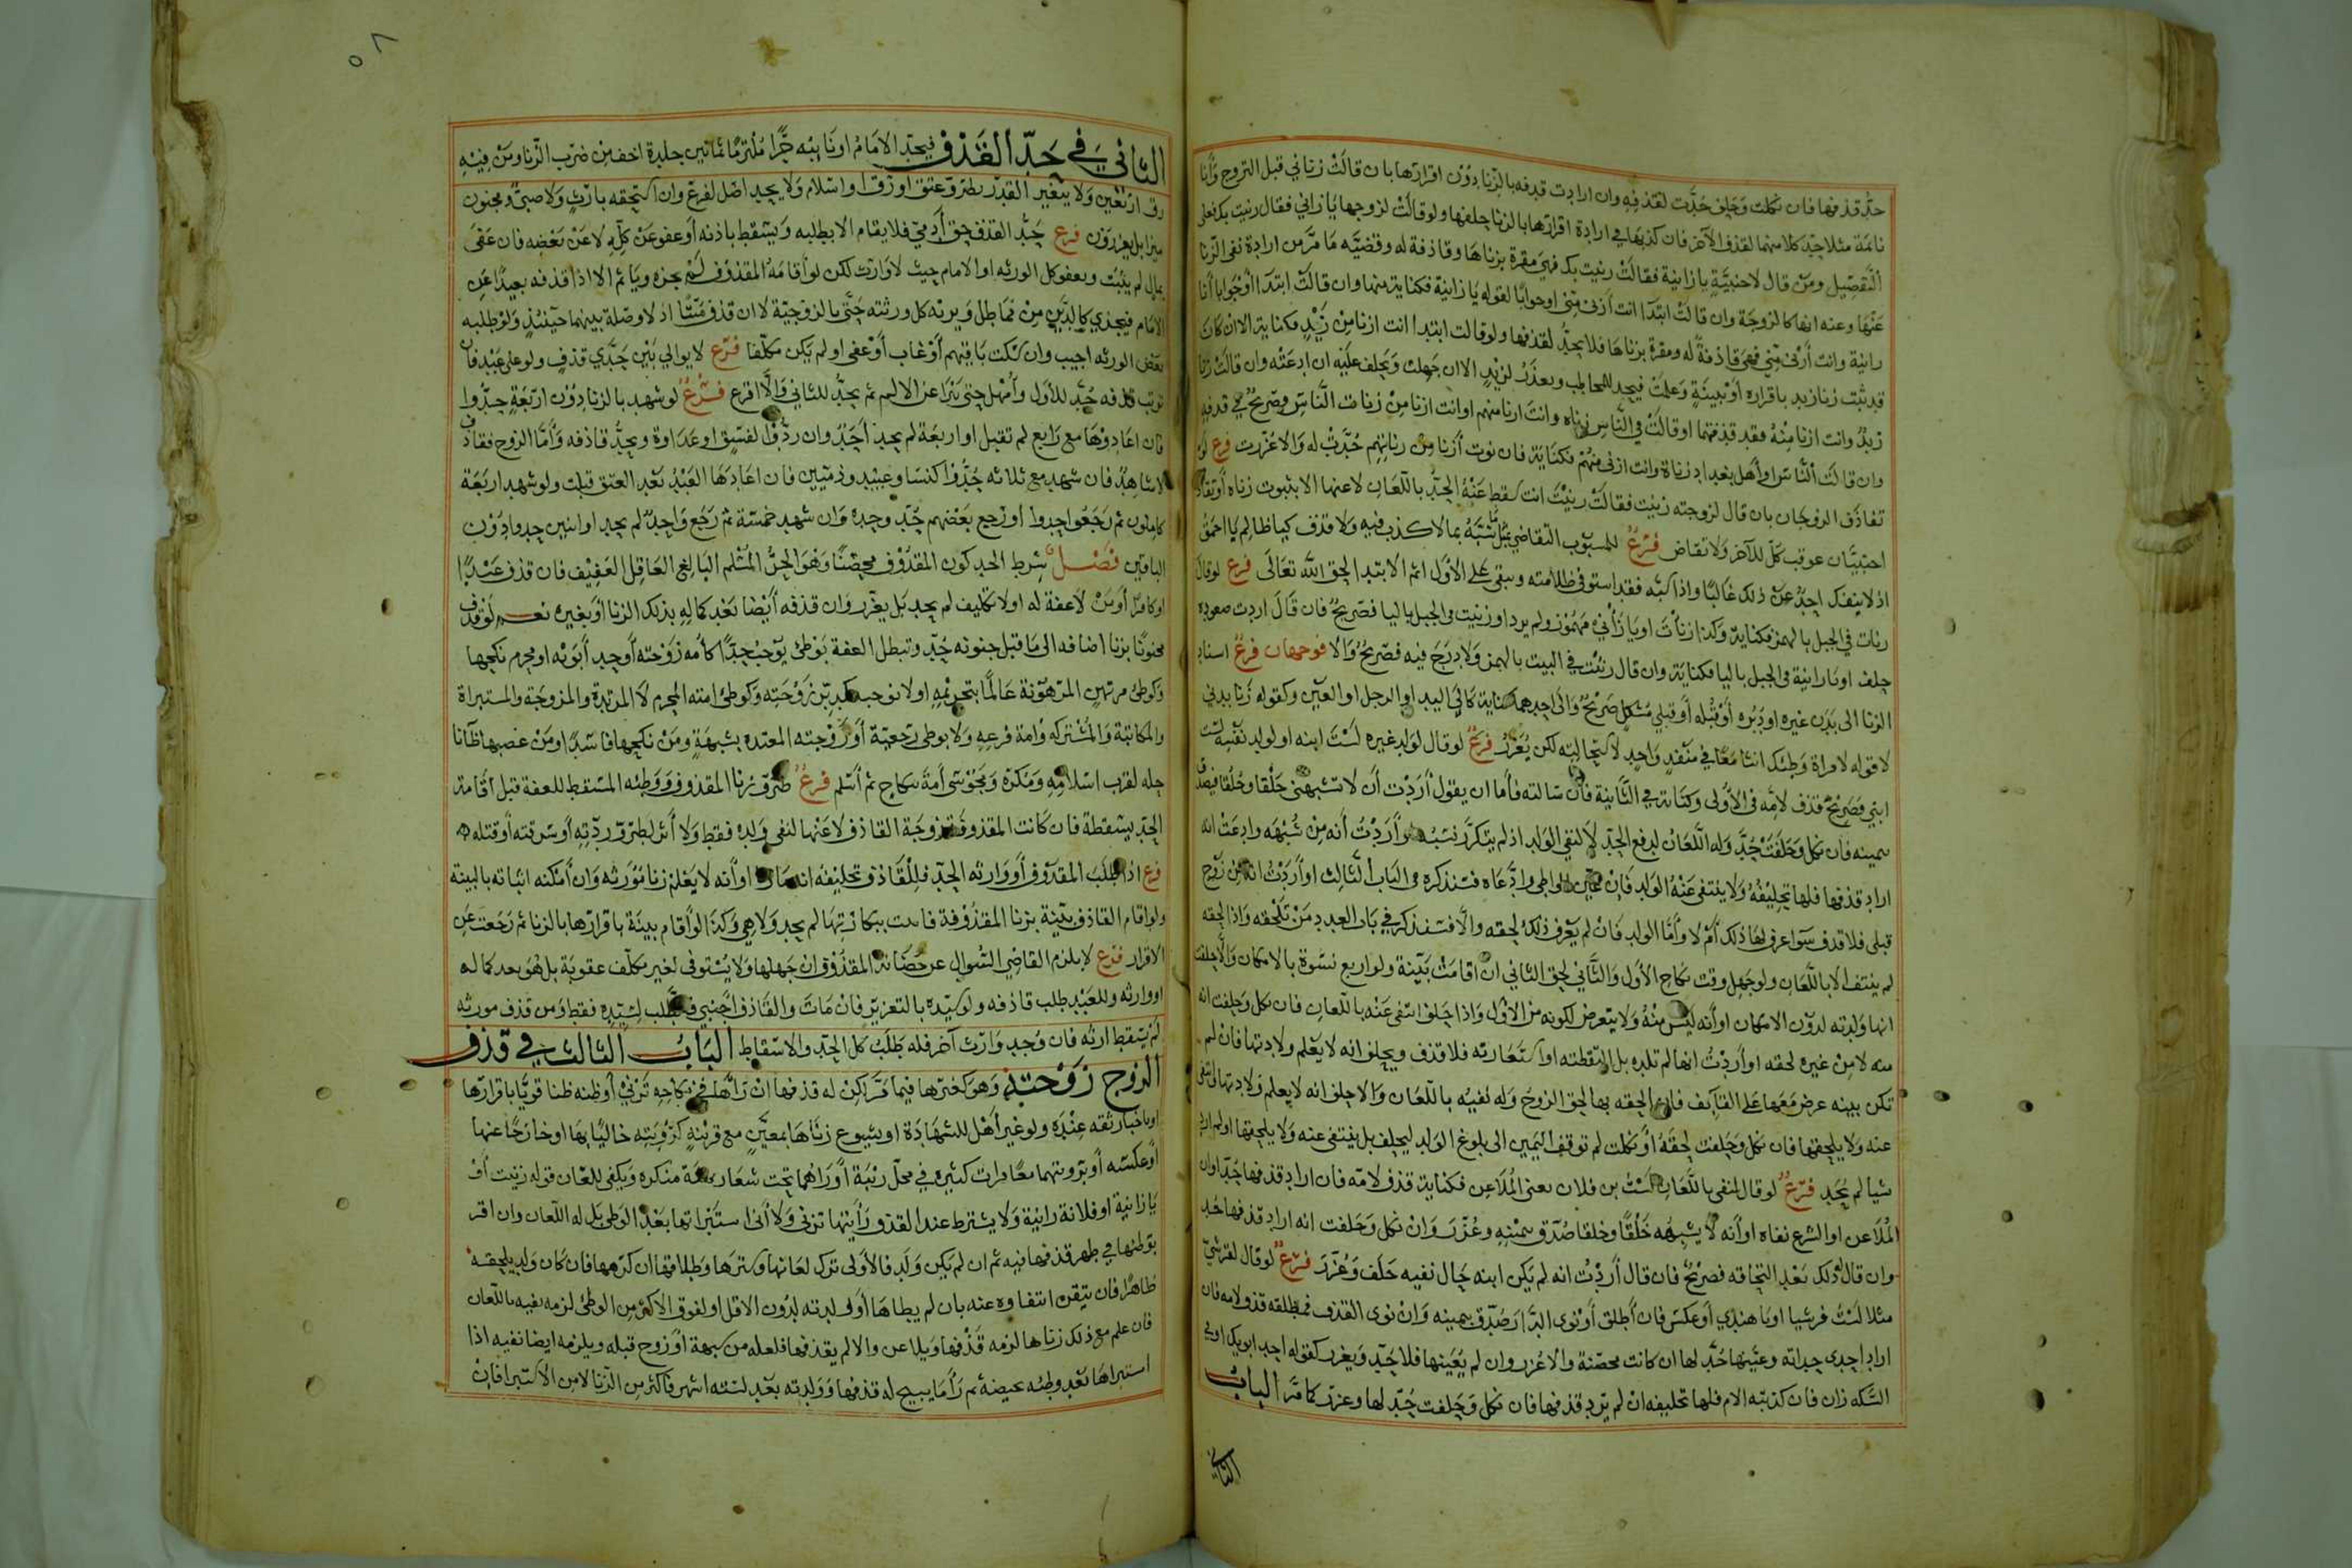 حدّ قذفها فان نكلت وحلف حُدَّت لقذفه وان ارادت قذفه بالزنا دون اقرارها بان قالت زناني قبل التزوج وأنا
نائمة مثلا حدّ كلا منهما لقذف الآخر فان كذبها في ارادة اقرارها بالزنا حلفها ولو قالت لزوجها يا زاني فقال زنيت بك فعلى
التفصيل ومن قال لاجنبية يا زانية فقالت زنيت بك فهي مقرة بزناها وقاذفة له وقضية ما مر من ارادة نفي الزنا
عنها وعنه انها كالزوجة وان قالت ابتدا انت ازنى مني او جوابا لقوله يا زانية فكناية منها وان قالت ابتدا او جوابا أنا
زانية وانت أزنى مني فهي قاذفة له ومقرة بزناها فلا يحدّ لقذفها ولو قالت ابتدا انت ازنا من زيد فكناية الا ان كان
قد ثبت زنا زيد باقراره او ببينة وعلمت فيحد للمخاطب ويعذر لزيد الا ان جهلت وتحلف عليه ان ادعته وان قالت زنا
زيد وانت ازنا منه فقد قذفتهما او قالت في الناس زناه وانت ازنا منهم او انت ازنا من زناة الناس فصريح في قذفه
وان قالت الناس او أهل بغداد زناة وانت ازنى منهم فكناية فان نوت أزنا من زناتهم حُدَّت له والا عُزّرت فرع لو
تقاذف الزوجان بان قال لزوجته زنيت فقالت زنيت انت سقط عنه الحد باللعان لا عنها الا بثبوت زناه او تقاذف
اجنبيان عوقب كل للآخر ولا تقاص فرع للمسبوب التقاضي بمثل سبه بما لا كذب فيه ولا قذف كيا ظالم يا احمق
اذ لا ينفك احد عن ذلك غالبا واذا سبه فقد استوفى ظلامته ويبقى على الاول اثم الابتدا لحق الله تعالى فرع لو قال
زنأت في الجبل بالهمز فكناية وكذا زنأت او يا زانئ مهموز ولم يرد او زنيت في الجبل باليا فصريح فان قال اردت صعوده
حلف او يا زانية في الجبل باليا فكناية وان قال زنئت في البيت بالهمز ولا درج فيه فصريح والا فوجهان فرع اسناد
الزنا الى بدن غيره او دبره او قبله او قبلي مشكل صريح والى احدهما كناية كالى اليد او الرجل او العين وكقوله زنا بدني
لا قوله لامراة وطئك اثنا معا في منفذ واحد لاستحالته لكن يعزر فرع لو قال لولد غيره لست ابنه او لولد نفسه لست
ابني فصريح قذف لامه في الاولى وكناية في الثانية فان سألته فاما ان يقول أردت أن لا تشبهني خلقا وخُلقا فيصدق
بيمينه فان نكل وحلفت حُدَّ وله اللعان لدفع الحد لا لنفي الولد اذ لم ينكر نسبه او أردت أنه من شبهه وادعت انه
اراد قذفها فلها تحليفه ولا ينتفي عنه الولد فان عين الواطي وادعاه فسنذكره في الباب الثالث او أردت انه من زوج
قبلي فلا قذف سوا عرف لها ذلك أم لا وأمّا الولد فان لم يعرف ذلك لحقه والا فسنذكر في باب العدد من تلحقه واذا لحقه
لم ينتف الا باللعان ولو جهل وقت نكاح الاول والثاني لحق الثاني ان اقامت بينة ولو اربع نسوة بالامكان والا حلفت
انها ولدته لدون الامكان او أنه ليس منه ولا يتعرض لكونه من الاول واذا حلف انتفى عنه باللعان فان نكل وحلفت انه
منه لا من غيره لحقه او أردت انها لم تلده بل التقطته او استعارته فلا قذف ويحلف انه لا يعلم ولادتها فان لم
تكن بينة عرض معها على القائف فان الحقه بها لحق الزوج وله نفيه باللعان والا حلف انه لا يعلم ولادتها انتفى
عنه ولا يلحقها فان نكل وحلفت لحقه او نكلت لم توقف اليمين الى بلوغ الولد ليحلف بل ينتفي عنه ولا يلحقها او لم ارد
شيا لم يحد فرع لو قال لمنفي باللعان لست بن فلان يعني الملاعن فكناية قذف لامه فان اراد قذفها حُدّ او ان
الملاعن او الشرع نفاه او أنه لا يشبهه خَلقا وخلقا صُدّق بيمينه وعُزّر وان نكل وحلفت انه اراد قذفها حُد
وان قال ذلك بعد استلحاقه فصريح فان قال أردت انه لم يكن ابنه حال نفيه حلف وعُزّر فرع لو قال لقرشي
مثلا لست قرشيا او يا هندي او عكس فان أطلق او نوى الدار صُدّق بيمينه وان نوى القذف فمطلقه قذف لامه فان
اراد احدى جداته وعينها حُدّ لها ان كانت محصنة والا عُزر وان لم يُعينها فلا حدّ ويعزر كقوله احد ابويك او في
السكة زان فان كذبته الام فلها تحليفه ان لم يرد قذفها فان نكل وحلفت حُدّ لها وعزر كما مرّ الباب
الثاني
٥٨
الثاني في حدّ القذف فيحدّ الامام او نائبه حرًّا ملتزما ثمانين جلدة اخف من ضرب الزنا ومن فيه
رق اربعين ولا يتغير القدر بطروّ عتق او رق او اسلام ولا يحد اصل لفرع وان استحقه بارث ولا صبي ومجنون
ميزا بل يعزرون فرع حدّ القذف حق آدمي فلا يقام الا بطلبه ويسقط باذنه أو عفو عن كله لا عن بعضه فان عفى
بمال لم يثبت وبعفو كل الورثه او الامام حيث لا وارث لكن لو أقامه المقذوف لم يجزه ويأثم الا اذا قذفه بعيدا عن
الامام فيجزي كالدين من مماطل ويرثه كل ورثته حتى بالزوجية لا ان قذف ميّتا اذ لا وصلة بينهما حينئذ ولو طلبه
بعض الورثه اجيب وان سكت باقيهم أو غاب أو عفى او لم يكن مكلفا فرع لا يوالي بين حدّي قذف ولو على عبد فان
ترتب قذفه حُدّ للاول وأمهل حتى يبرا عن الالم ثم يحدّ للثاني والا اقرع فرع لو شهد بالزنا دون اربعة حدّوا
فان اعادوها مع رابع لم تقبل او اربعة لم يحد أحد وان ردّوا لفسق او عداوة ويحدّ قاذفه وأمّا الزوج فقاذف
لا شاهد فان شهد مع ثلاثه حُدّوا كنسا وعبيد وذميين فان اعادها العبد بعد العتق قبلت ولو شهد اربعة
كاملون ثم رجعوا حدوا او رجع بعضهم حُدّ وحده وان شهد خمسة ثم رجع واحد لم يحد او اثنين حدوا دون
الباقين فصل شرط الحد كون المقذوف محصنا وهو الحر المسلم البالغ العاقل العفيف فان قذف عبدا
او كافرا او من لا عفة له او لا تكليف لم يحد بل يعزر وان قذفه أيضا بعد كماله بذلك الزنا أو بغيره نعم لو قذف
مجنونا بزنا اضافه الى ما قبل جنونه حُدّ وتبطل العفة بوطئ يوجب حدّا كأمة زوجته أو أحد أبويه او محرم نكحها
وكوطئ مرتهن المرهونة عالما بتحريمه او لا يوجبه كدبر زوجته وكوطئ امته المحرم لا المرتدة والمزوجة والمستبراة
والمكاتبة والمشتركه وامة فرعه ولا بوطئ رجعية أو زوجته المعتده بشبهة ومن نكحها فاسدا ومن غصبها ظانا
حله لقرب اسلامه ومكره ومجوسي أمة نكاح ثم أسلم فرع طروّ زنا المقذوف ووطئه المسقط للعفة قبل اقامة
الحد يسقطه فان كانت المقذوفة زوجة القاذف لاعنها لنفي ولده فقط ولا أثر لطرو ردته أو سرقته أو قتله
فرع اذا طلب المقذوف أو وارثه الحد فللقاذف تحليفه انه ما زنا او أنه لا يعلم زنا مورثه وان أمكنه اثباته بالبينة
ولو اقام القاذف بينة بزنا المقذوفة فاقامت بينة ببكارتها لم يحد ولا هي وكذا لو أقام بينة باقرارها بالزنا ثم رجعت عن
الاقرار فرع لا يلزم القاضي السؤال عن حصانة المقذوف ان جهلها ولا يستوفى لغير مكلف عقوبة بل هو بعد كماله
او وارثه وللعبد طلب قاذفه ولو سيده بالتعزير فان مات والقاذف اجنبي فالطلب لسيده فقط ومن قذف مورثه
لم يسقط ارثه فان وجد وارث آخر فله طلب كل الحد والا سقط الباب الثالث في قذف
الزوج زوجته وهو كغيرها فيما مرّ لكن له قذفها ان رآها في نكاحه تزني أو ظنه ظنا قويّا باقرارها
او باخبار ثقه عنده ولو غير أهل للشهادة او بشيوع زناها بمعيّن مع قرينة كرؤيته خاليا بها او خارجا عنها
أو عكسه أو برؤيتهما معا مرات كثيرة في محل ريبة أو رآهما تحت شعار بهيئة منكرة ويكفي للعان قوله زنيت أو
يا زانية او فلانة زانية ولا يشترط عند القذف رأيتها تزني ولا أنى استبراتها بعد الوطئ بل له اللعان وان اقر
بوطئها في طهر قذفها فيه ثم ان لم يكن ولد فالاولى ترك لعانها وسترها وطلاقها ان كرهها فان كان ولد يلحقه
ظاهرا فان تيقن انتفاوه عنه بان لم يطاها أو ولدته لدون الاقل او لفوق الاكثر من الوطئ لزمه نفيه باللعان
فان علم مع ذلك زناها لزمه قذفها ويلاعن والا لم يقذفها فلعله من شبهة أو زوج قبله ويلزمه ايضا نفيه اذا
استبراها بعد وطئه بحيضة ثم رأى ما يبيح له قذفها وولدته بعد لستة اشهر فاكثر من الزنا لا من الاستبرا فان